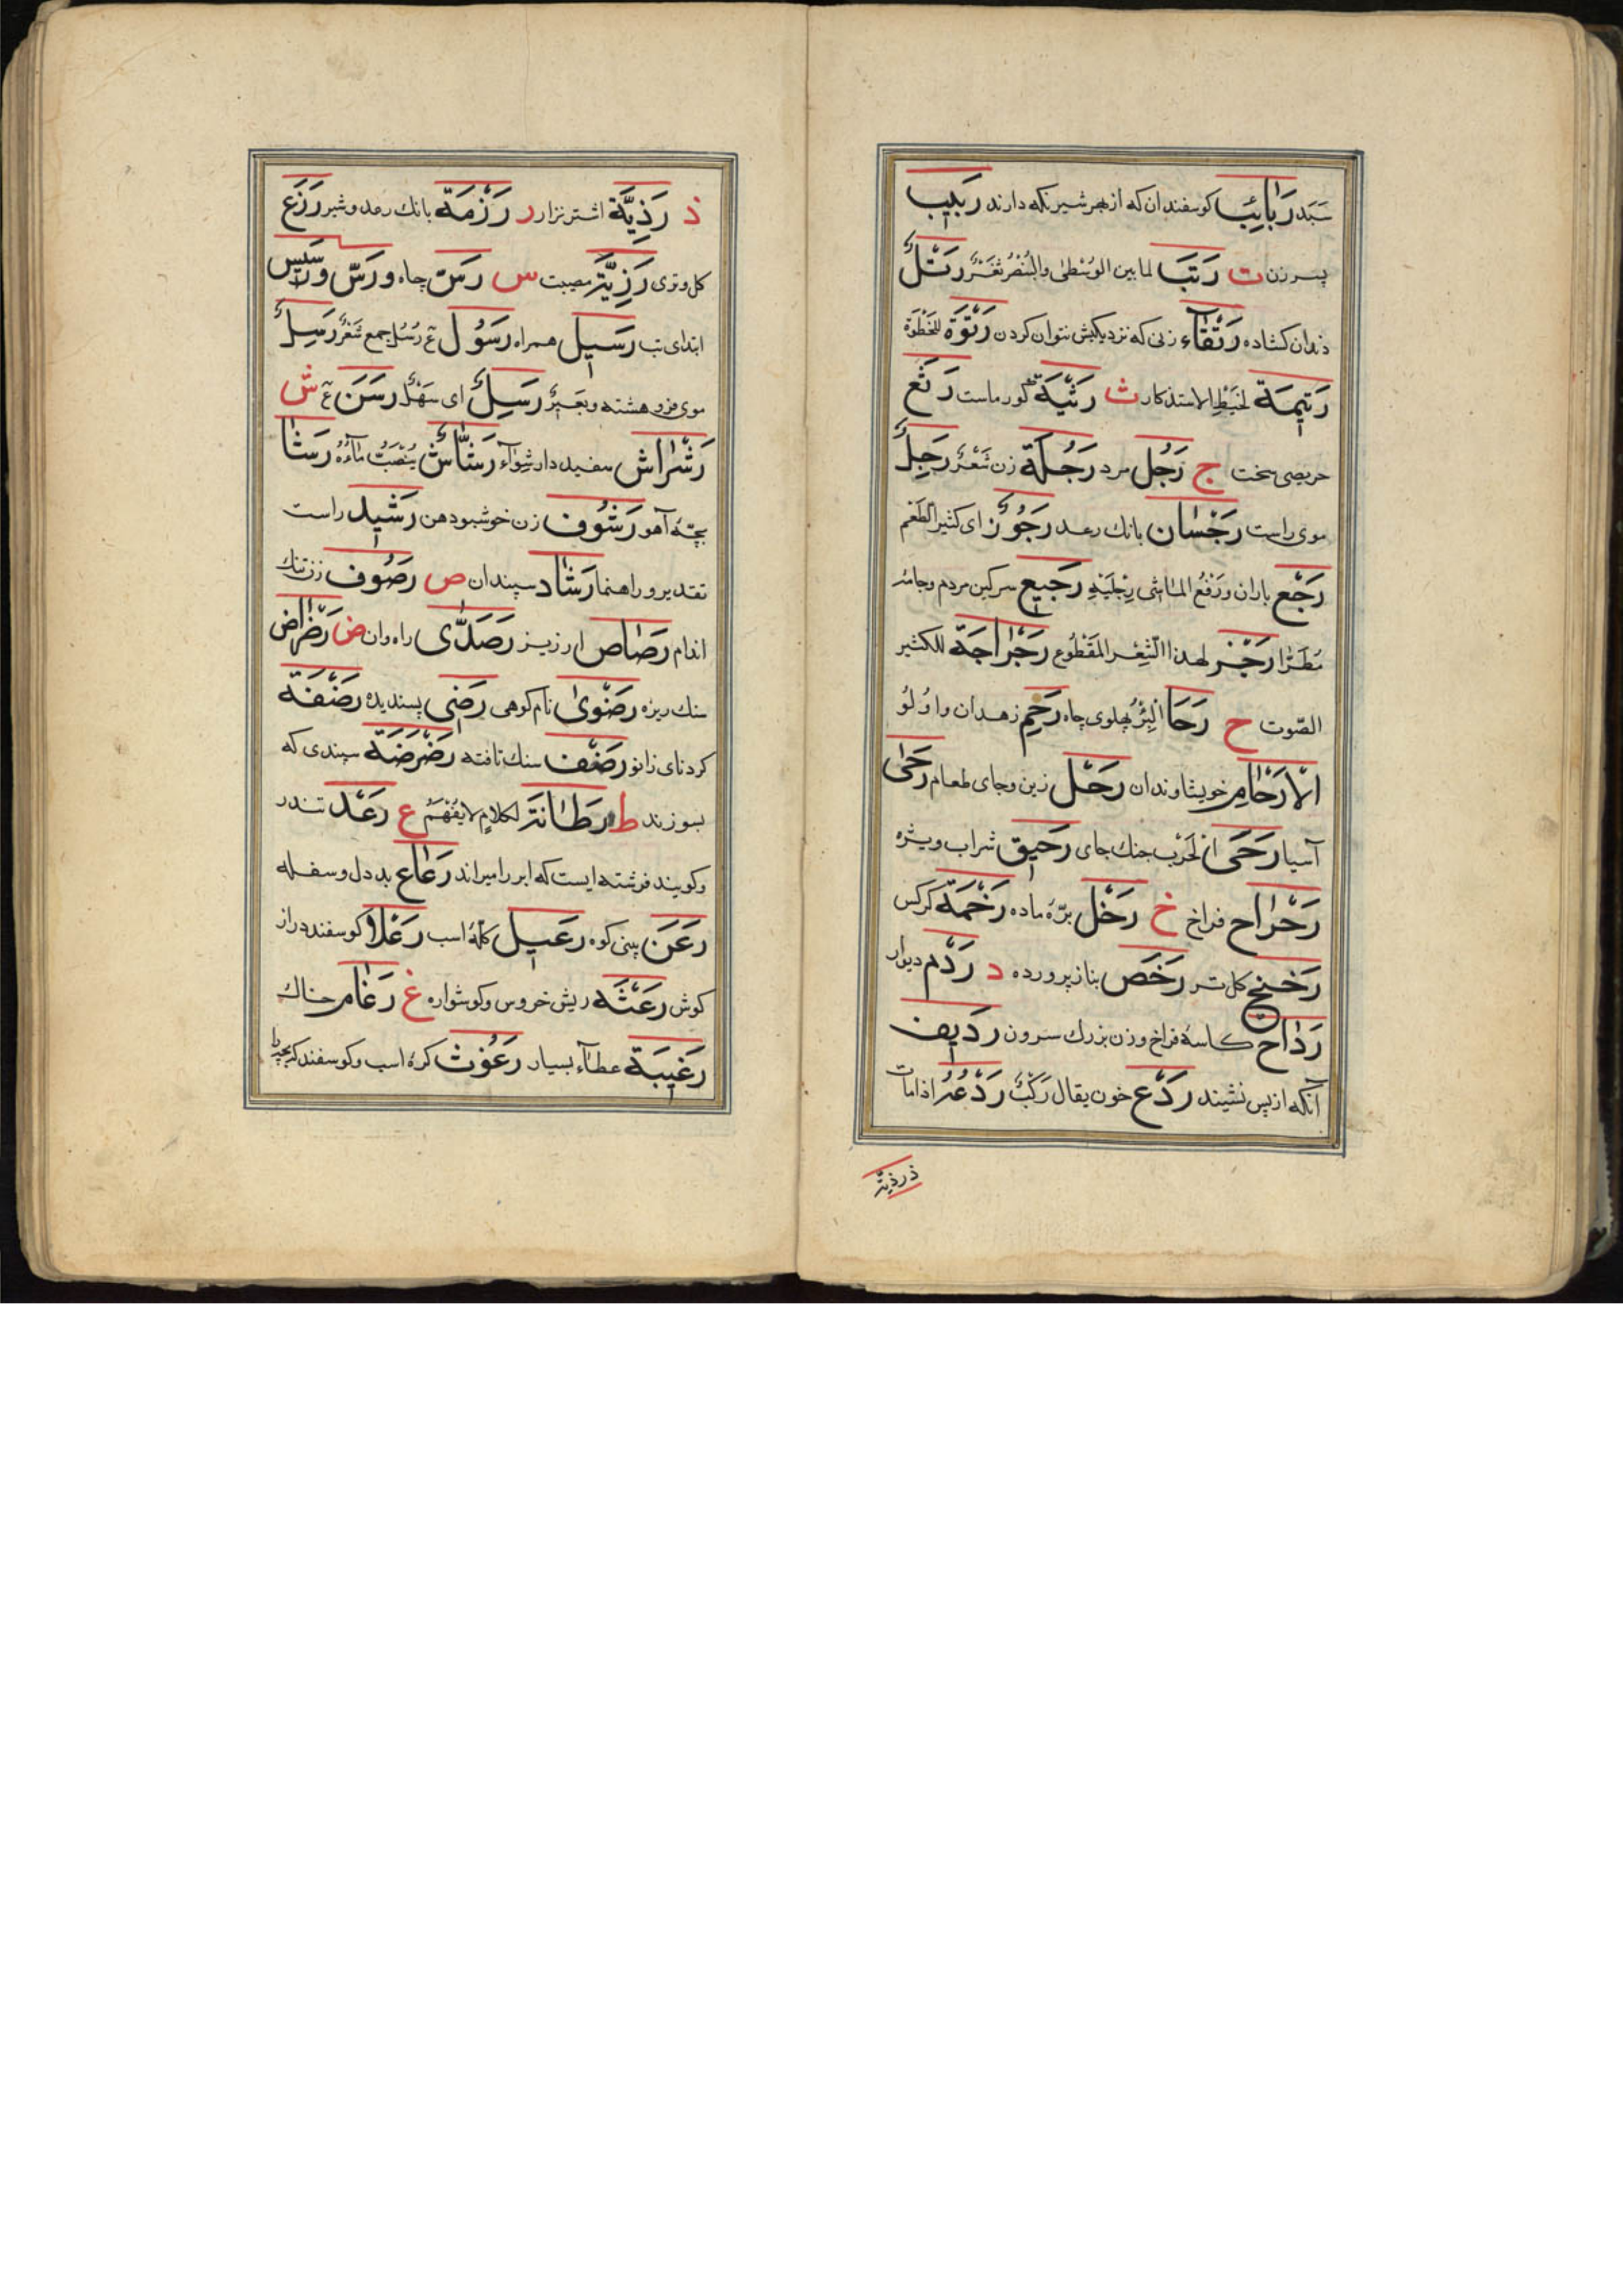 سَبَد رَبَائِبْ كوسفندان كه از بهر شير نكه دارند رَبِيب
پسر زن ت رَتَبْ لما بين الوُسْطىٰ والبُنْصُر ثَغْرٌ رَتِلٌ
دندان كشاده رَتْقَاء زنى كه نزديكيش نتوان كردن رَتْوَة للخَطْوَة
رَتِيمَة لخَيْطِ الاستذكار ث رَثِيَّة كور ماست رَثَع
حريصى سخت ج رَجُل مرد رَجُلَة زن شَعْرٌ رَجِلٌ
موى راست رَجْسَان بانك رعد رَجُوز اى كثير
رَجْع باران ورَفْعُ الماشى رِجْلَيْهِ رَجِيع سركين مردم وجامهٔ
مُطَرّا رَجَز لهذا الشِعْر المَقْطُوع رَجْرَاجَة للكثير
الصّوت ح رَحَا البِئْرِ پهلوى چاه رَحِم زهدان واُولُو
الأرْحَامِ خويشاوندان رَحْل زين وجاى طعام رَحَىٰ
آسيا رَحَى الحَرْب جنك جاى رَحِيق شراب ويژه
رَحْرَاح فراخ خ رَخْل برّهٔ ماده رَخَمَة كركس
كل تر رَخْص بناز پرورده د رَدْم ديوار
رَدَاح كاسهٔ فراخ وزن بزرك سرون رَدِيف
آنكه از پس نشيند رَدْع خون يقال رَكِبَ رَدْعَهُ اذا مات
ذ رذيّة
ذ رَذِيَّة اشتر نزار ر رَزْمَة بانك رعد وشير رَزَغ
كل وترى رَزِيَّة مصيبت س رَسّ چاه ورَسّ ورَسِيس
ابتداى تب رَسِيل همراه رَسُول ع رُسُل جمع شَعْرٌ رَسِلٌ
موى فرو هشته وبَعِيرٌ رَسِلٌ اى سَهْلٌ رَسَن ع ش
رَشْرَاش سفيد دار شِوَآء رَشَّاشٌ يُنْصَبُّ مَآءُهُ رَشَا
بچّهٔ آهو رَشُوف زن خوشبو دهن رَشِيد راست
تقدير وراهنما رَشَاد سپندان ص رَصُوف زن تنك
اندام رَصَاص ارزيز رَصَدِّى راه وان ض رَضْرَاض
سنك ريزه رَضْوَىٰ نام كوهى رَضِى پسنديده رَضْفَة
كردناى زانو رَضْف سنك تافته رَضْرَضَة سپندى كه
بسوزند ط رَطَانَة لكلامٍ لا يُفْهَمُ ع رَعْد تندر
وكويند فرشته ايست كه ابر را ميراند رَعَاع بد دل وسفله
رَعَن بينى كوه رَعِيل كلّهٔ اسب رَعْلَا كوسفند دراز
كوش رَعْثَه ريش خروس وكوشواره غ رَغَام خاك
رَغِيبَة عطآء بسيار رَغُوث كرهٔ اسب وكوسفند